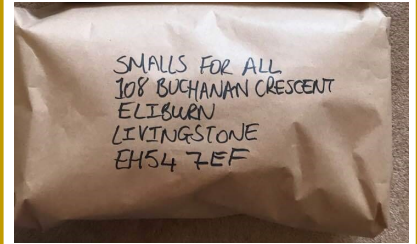 SMALLS FOR ALL
108 BUCHANAN CRESCENT
ELIBURN
LIVINGSTONE
EH54 7EF